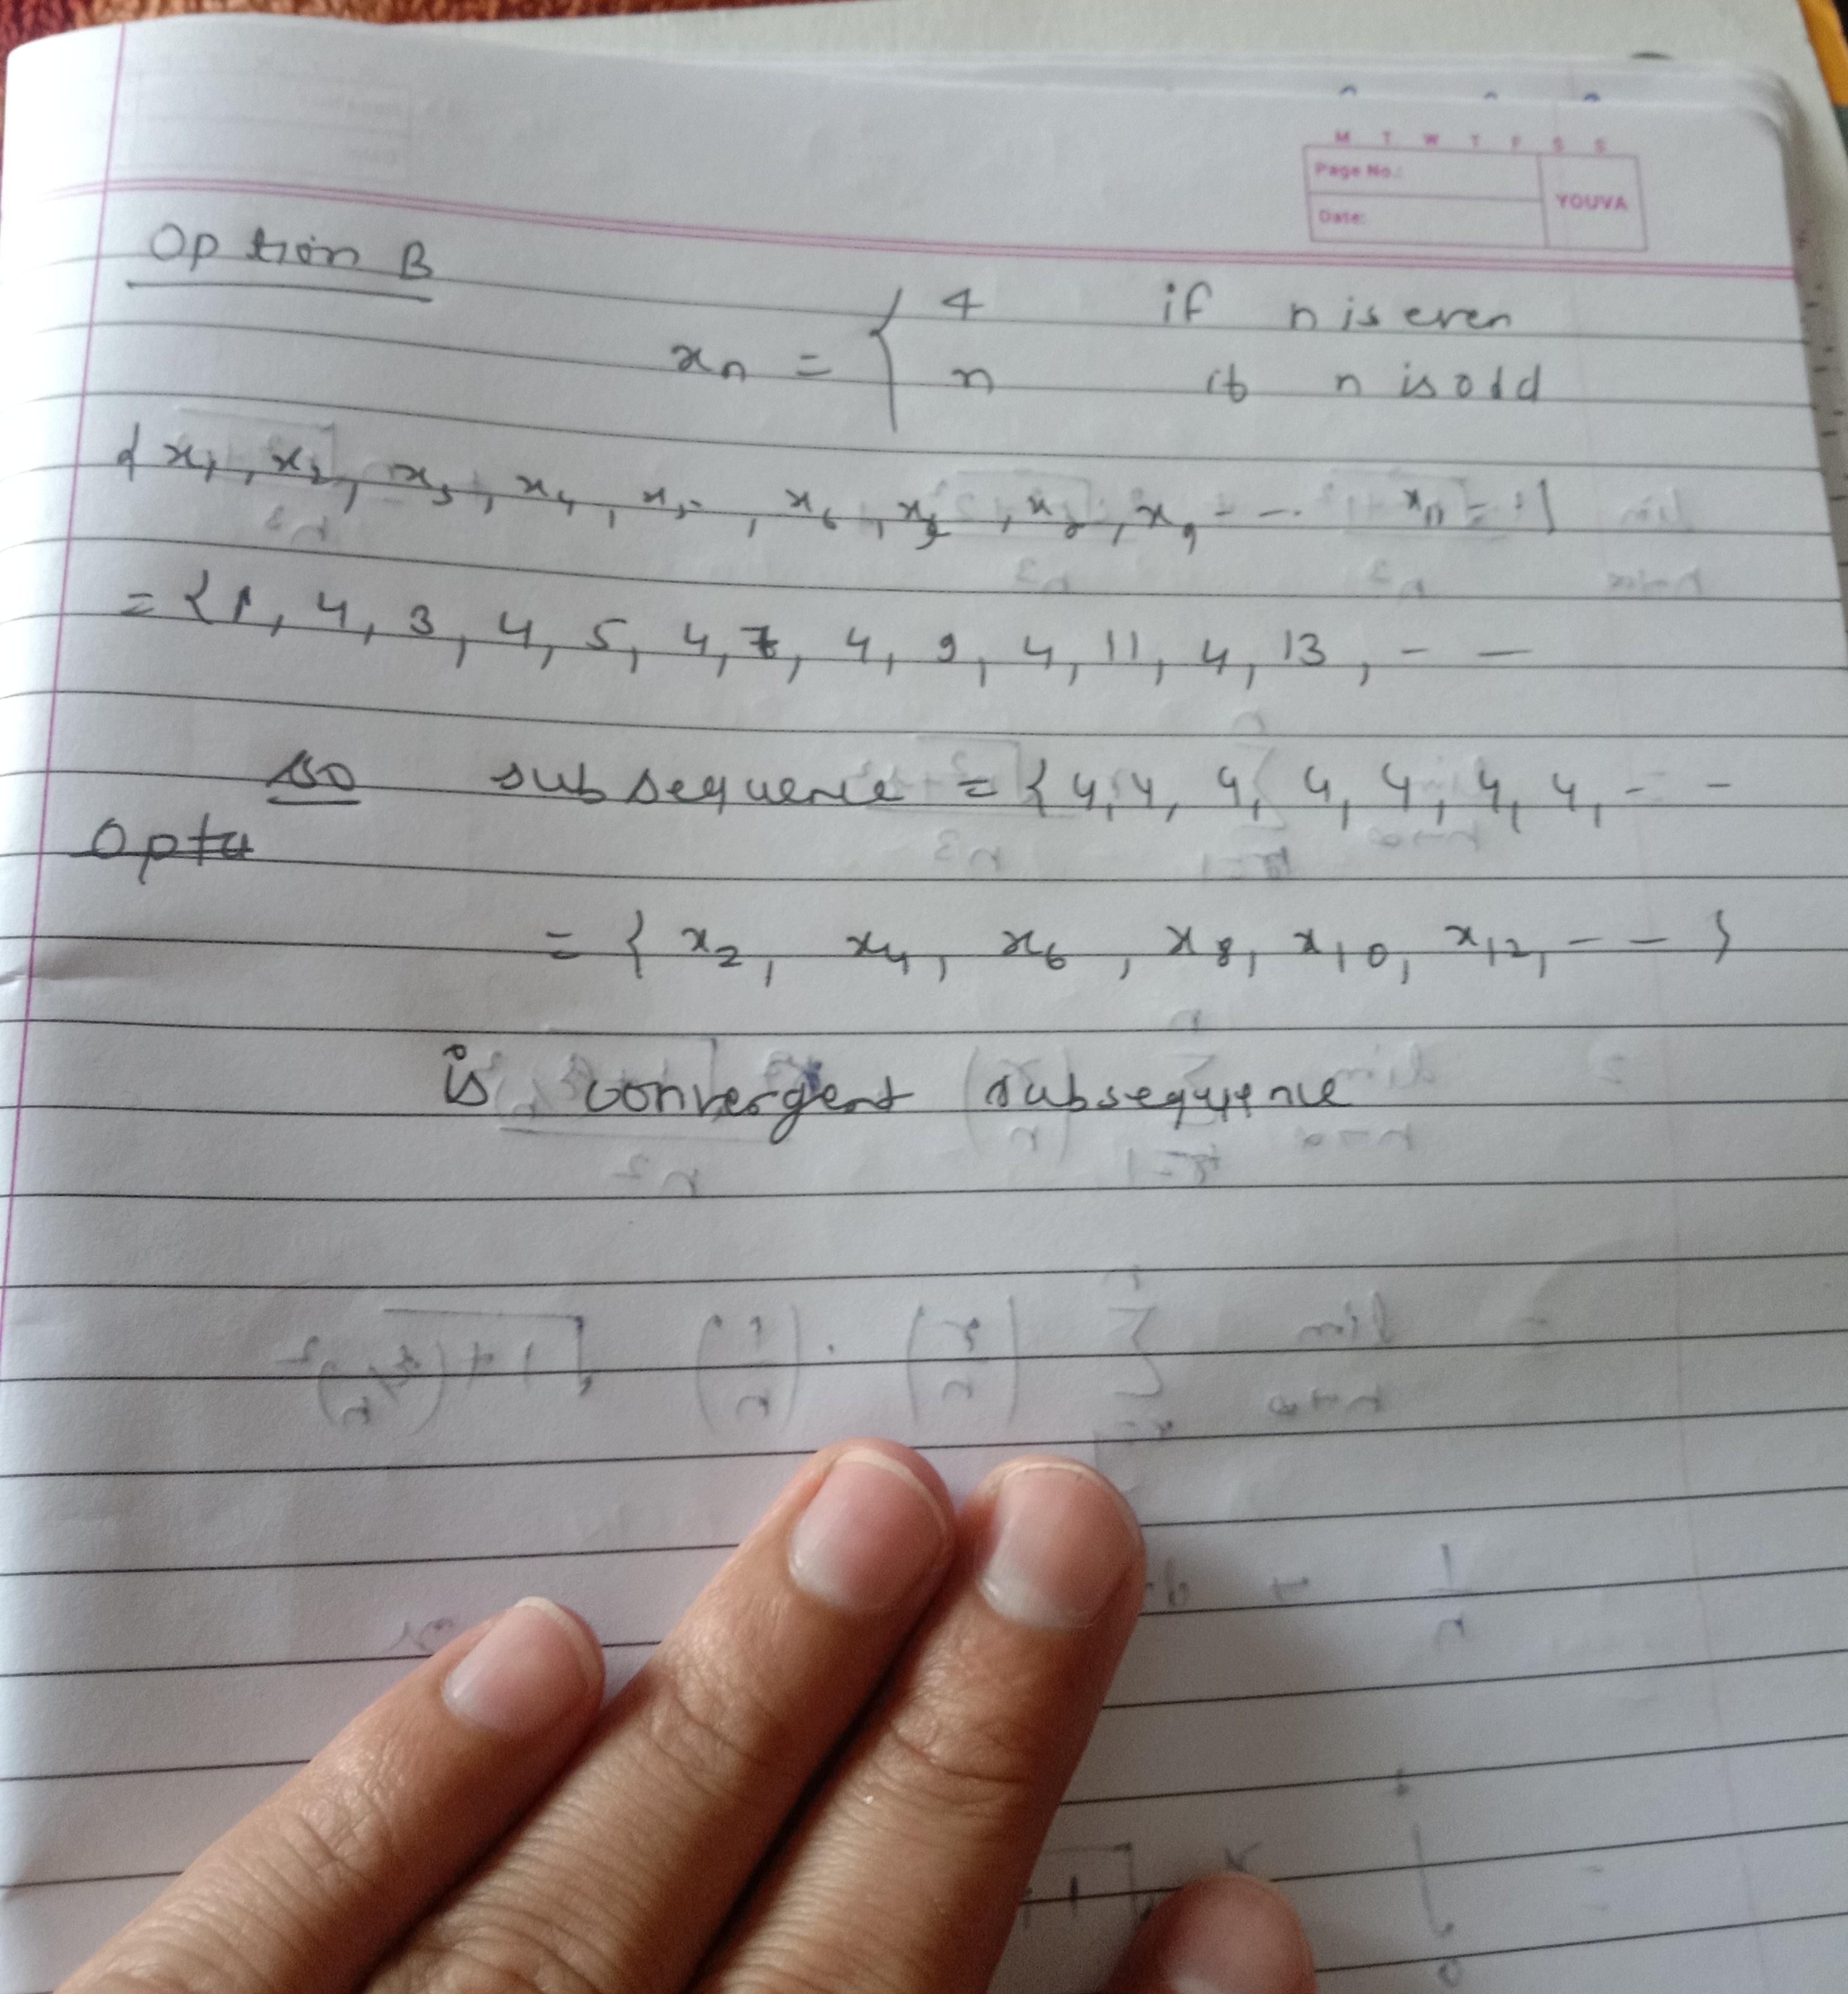 M T W T F S S
Page No.:
Date:
YOUVA
Option B
xₙ = { 4 if n is even
n if n is odd
{ x₁, x₂, x₃, x₄, x₅, x₆, x₇, x₈, x₉ - - -
= { 1, 4, 3, 4, 5, 4, 7, 4, 9, 4, 11, 4, 13, - -
so subsequence = { 4, 4, 4, 4, 4, 4, 4, - -
= { x₂, x₄, x₆, x₈, x₁₀, x₁₂, - - }
is convergent subsequence